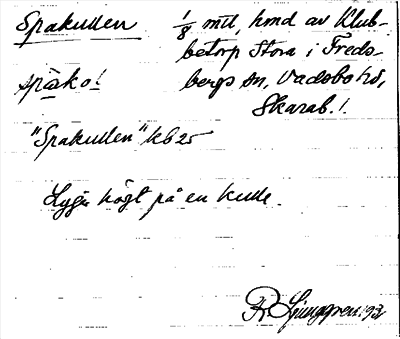 Spakullen 1/8 mil, hmd av Klub-
betorp Stora i Freds-
spako! bergs sn, Vadsbo hd,
Skarab. l.
"Spakullen" kb 25
Ligger högt på en kulle.
R. Ljunggren. 93